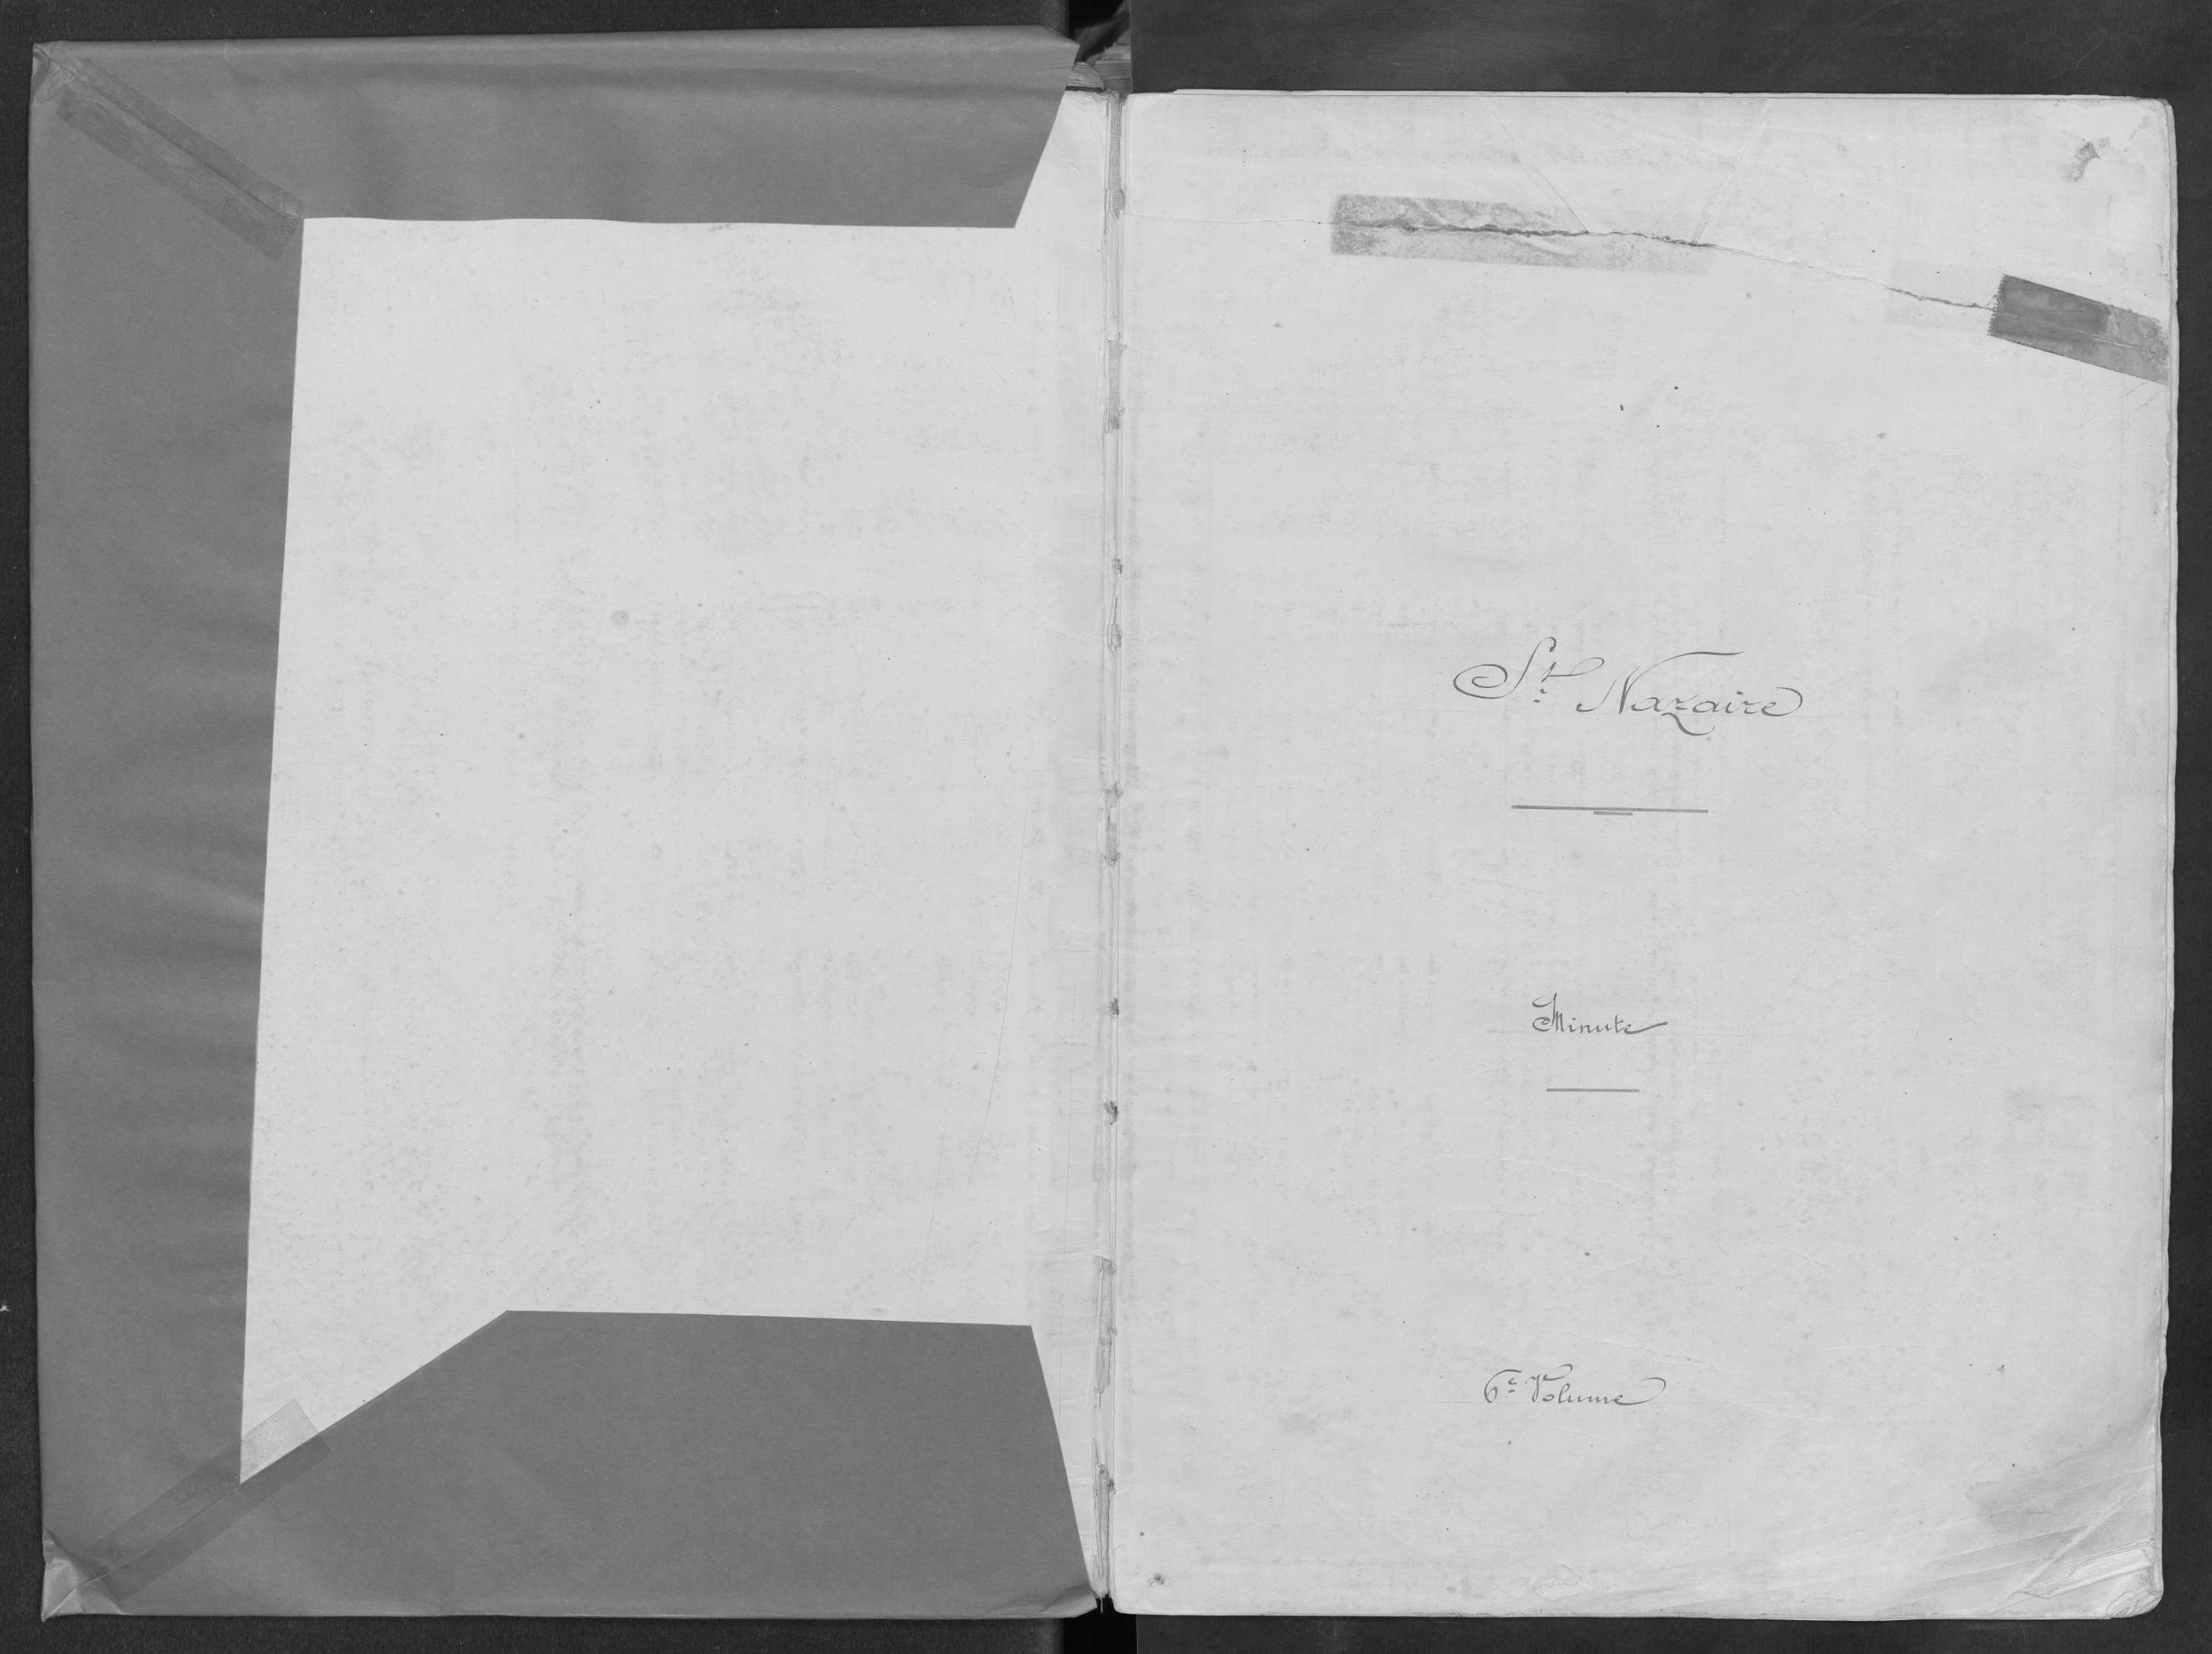 St Nazaire
Minute
6e Volume